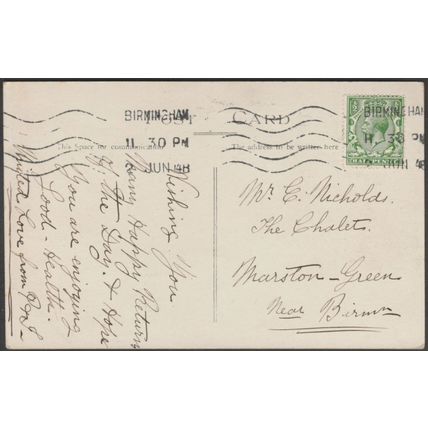 POST CARD
BIRMINGHAM
11 30 PM
JUN
BIRMINGHAM
This Space for communication
The address to be written here
HALFPENNY
Wishing You
Many Happy Returns
of the Day. & Hope
You are enjoying
Good - Health.
United Love from
Mr. C. Nicholds.
The Chalet.
Marston-Green
Near Birmm